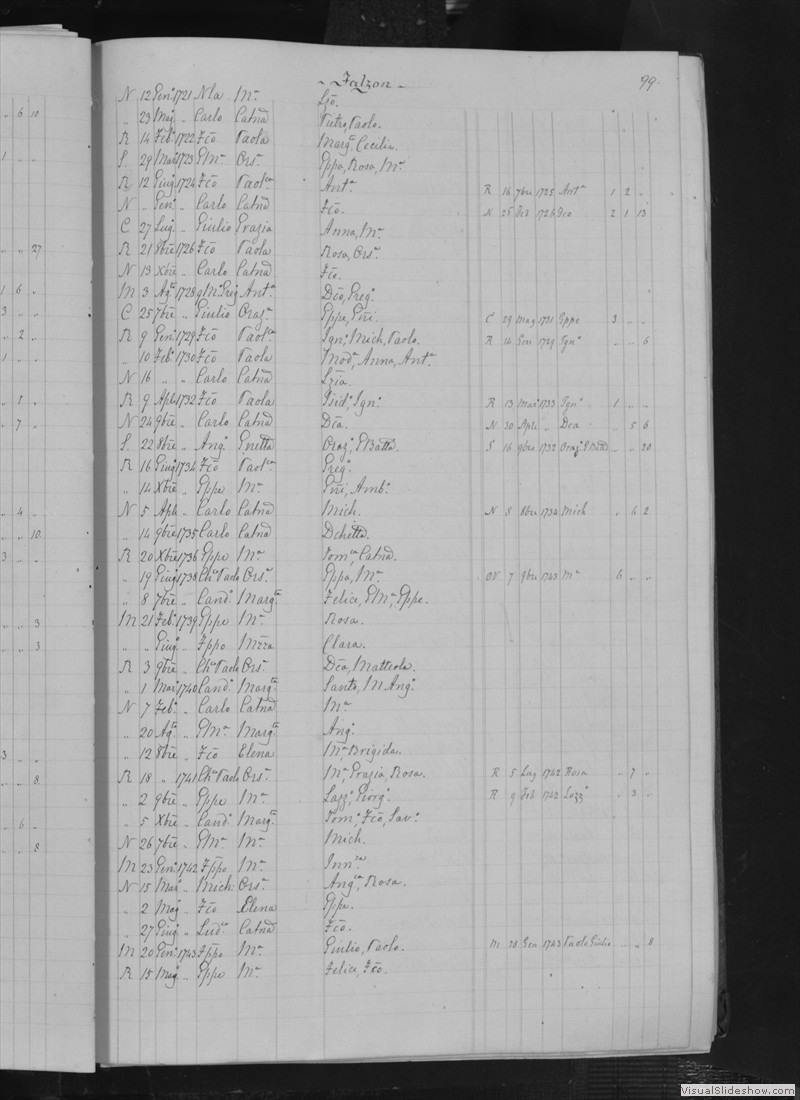 - Falzon - 99.
N 12 Gen.o 1721 Nla M.a Lzo.
„ 23 Mag. „ Carlo Catna Pietro, Paolo.
R 14 Feb.o 1722 Fco Paola Marg.a, Cecilia.
S. 29 Mar. 1723 GM.a Ors.a Gppa, Rosa, M.a
R 12 Giug. 1724 Fco Paol.ca Ant.a R 16 7bre 1725 Ant.a 1 2 „
N „ Gen.o „ Carlo Catna Fco. N 25 Feb 1726 Fco 2 1 13
C 27 Lug. „ Giulio Grazia Anna, M.a
„ „ 27 R 21 8bre 1726 Fco Paola Rosa, Ors.a
N 13 Xbre „ Carlo Catna Fco.
1 6 „ M 3 Ag.to 1728 Ant.a Dco, Greg.o
3 „ „ C 25 7bre „ Giulio Oraz.a Gppe, Gni. C 29 Mag 1731 Gppe 3 „ „
„ 2 „ R 9 Gen.o 1729 Fco Paol.ca Ign.o, Mich, Paolo. R 14 Gen 1729 Ign.o „ „ 6
1 „ „ „ 10 Feb.o 1730 Fco Paola Mod.a, Anna, Ant.a
N 16 „ „ Carlo Catna Lzia.
„ 1 „ R 9 Aple 1732 Fco Paola Isid.o, Ign.o R 13 Mar 1733 Ign.o 1 „ „
„ 7 „ N 24 9bre „ Carlo Catna Dca. N 30 Aple „ Dca „ 5 6
S. 22 8bre „ Ang.o Gnetta Oraz.o, GBatta. S 16 9bre 1732 Oraz.o GBatta „ „ 20
R 16 Giug. 1734 Fco Paol.ca Greg.o
„ 14 Xbre „ Gppe M.a Gni, Amb.o
„ 4 „ N 5 Aple „ Carlo Catna Mich. N 8 8bre 1734 Mich „ 6 2
„ „ 10 „ 14 9bre 1735 Carlo Catna Dchetta.
3 „ „ R 20 Xbre 1736 Gppe M.a Tom.ca, Catna.
„ 19 Giug. 1738 Ch.o Paolo Ors.a Gppa, M.a 7 9bre 1743 M.a 6 „ „
„ 8 7bre „ Cand.o Marg.ta Felice, GM.a, Gppe.
„ „ 3 M 21 Feb.o 1739 Gppe M.a Rosa.
„ „ 3 „ „ Giug.o „ Fppo Mzza Clara.
R 3 9bre „ Ch.o Paolo Ors.a Dca, Matteola.
„ 1 Mar. 1740 Cand.o Marg.ta Santo, M Ang.o
N 7 Feb.o „ Carlo Catna M.a
„ 20 Ag.to „ GM.a Marg.ta Ang.o
„ 12 8bre „ Fco Elena M.a Brigida.
3 „ „ R 18 „ 1741 Ch.o Paolo Ors.a M.a, Grazia, Rosa. R 5 Lug 1742 Rosa „ 7 „
„ „ 8 „ 2 9bre „ Gppe M.a Lazz.o, Giorg.o R 9 Feb 1742 Lazz.o „ 3 „
„ 5 Xbre „ Cand.o Marg.ta Tom.o, Fco, Sav.o
„ 6 „ N 26 7bre „ GM.a M.a Mich.
„ „ 8 M 23 Gen.o 1742 Fppo M.a Inn.za
N 15 Mar. „ Mich: Ors.a Ang.ca, Rosa.
„ 2 Mag. „ Fco Elena Gppe.
„ 27 Giug. „ Lud.co Catna Fco.
M 20 Gen.o 1743 Fppo M.a Giulio, Paolo. M 28 Gen 1743 Paolo Giulio „ „ 8
R 15 Mag. „ Gppe M.a Felice, Fco.
1
„ 6 10
VisualSlideshow.com